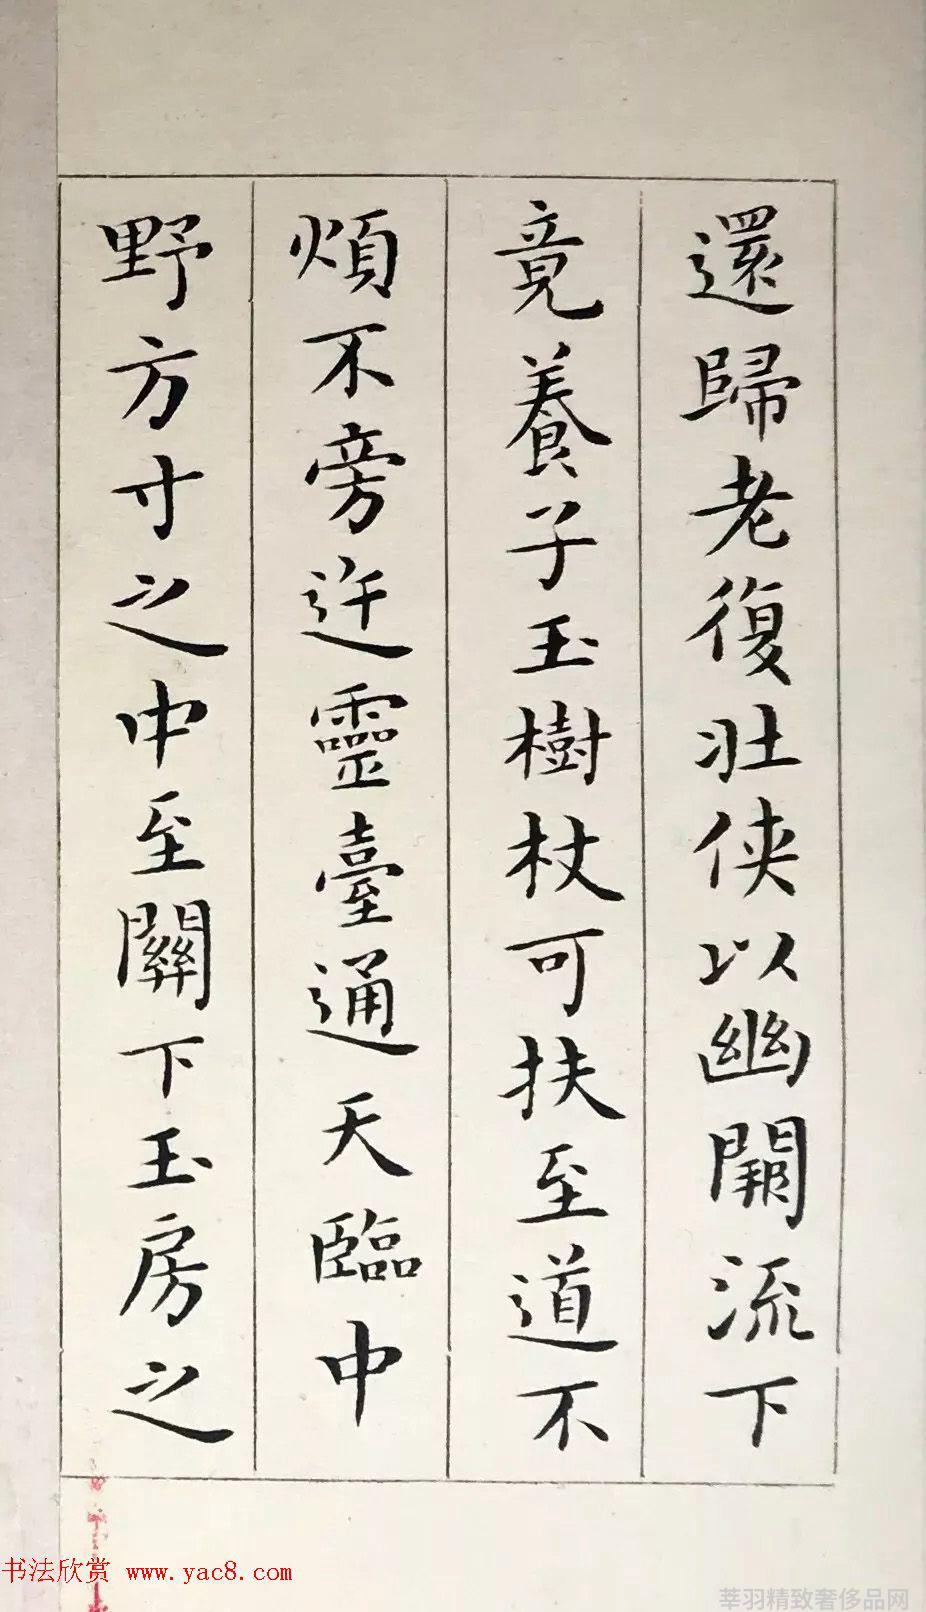 還歸老復壯俠以幽闕流下
竟養子玉樹杖可扶至道不
煩不旁迕靈臺通天臨中
野方寸之中至關下玉房之
书法欣赏 www.yac8.com
莘羽精致奢侈品网